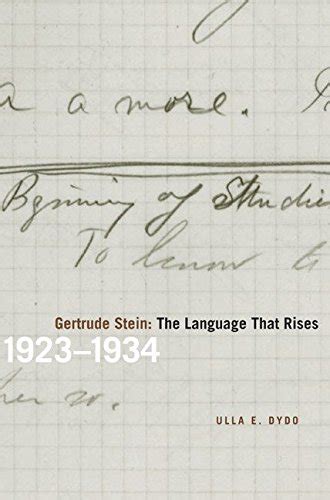 a a more.
Bginning of Studie
To know t
Gertrude Stein: The Language That Rises
1923–1934
her so.
ULLA E. DYDO